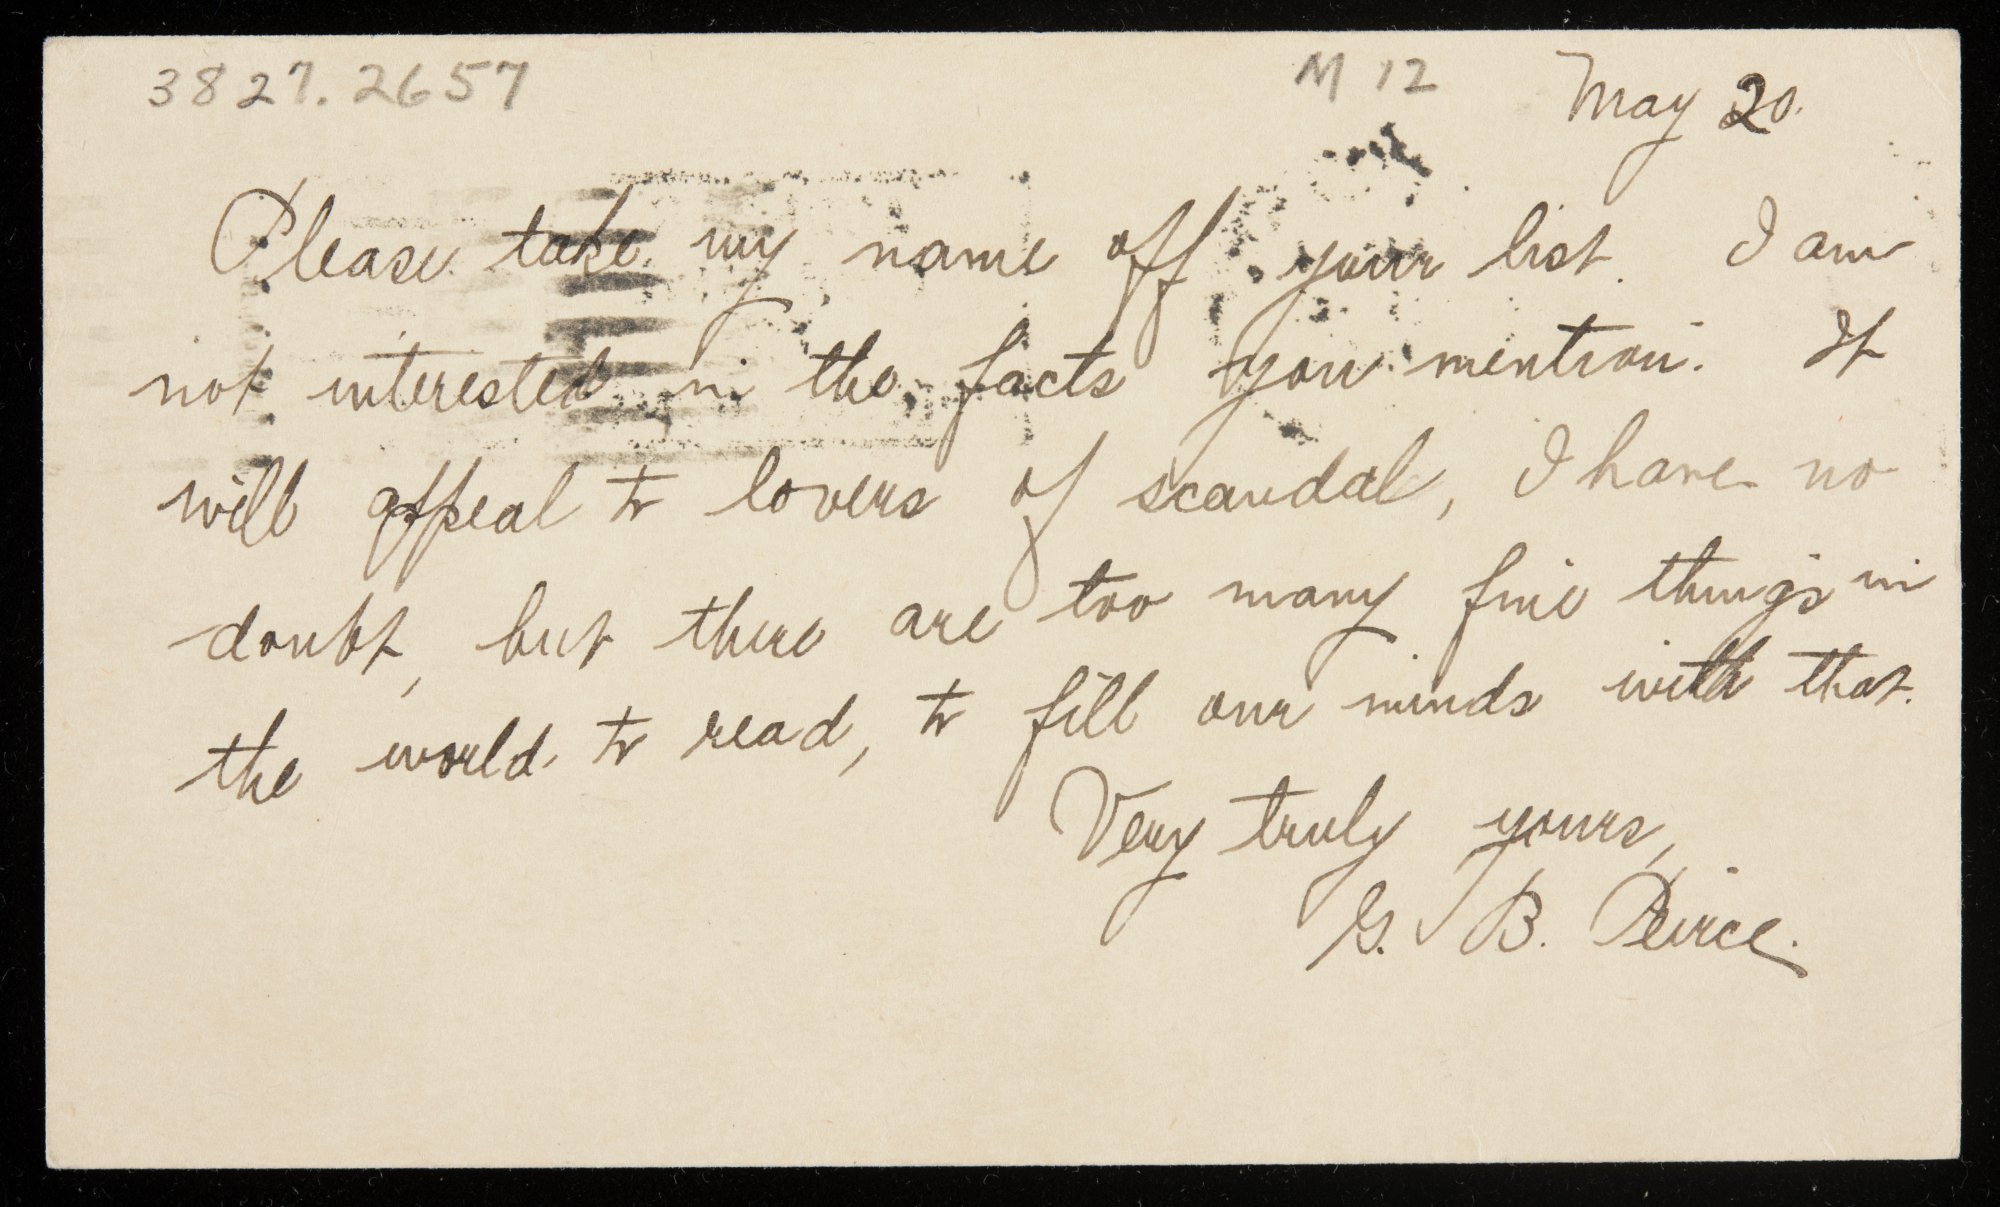 3827.2657 M 12 May 20.
Please take my name off your list. I am
not interested in the facts you mention. It
will appeal to lovers of scandal, I have no
doubt, but there are too many fine things in
the world to read, to fill our minds with that.
Very truly yours,
G. B. Peirce.